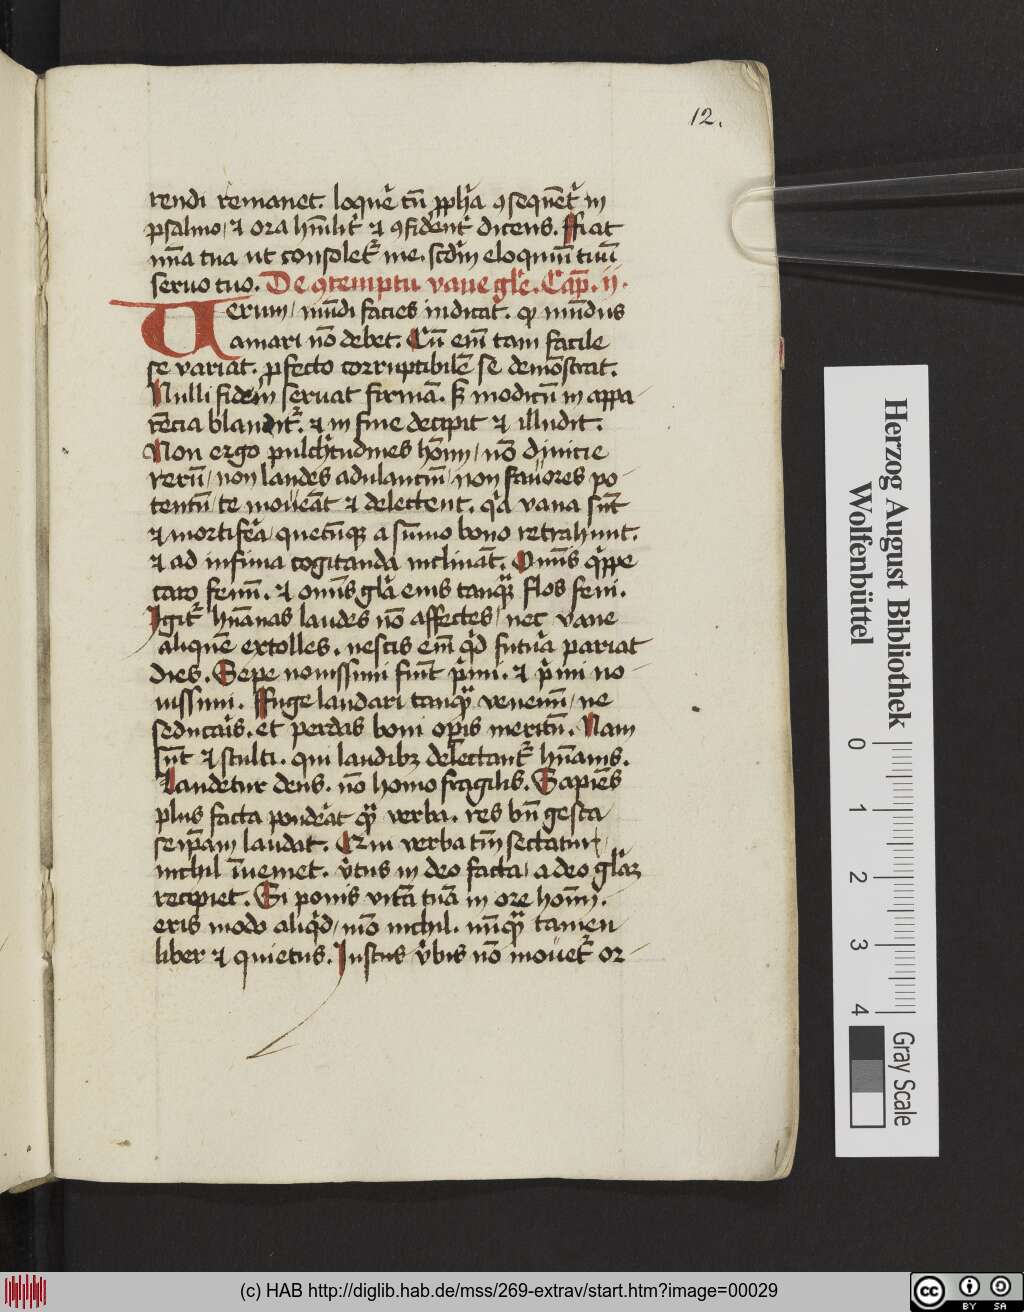 12.
rendi remanet. loque᷒ cū ꝓph᷒a ꝯsequēt᷒ in
psalmo / ⁊ ora hūilit᷒ ⁊ ꝯfident᷒ dicens. ffiat
mīa tua ut consolet᷒ me. scd᷒m eloquiū tuū
seruo tuo. De ꝯtemptu vane gl᷒e. Cap̄. ij.
Uerum / mūdi facies indicat. ꝙ mūdus
amari nō debet. Cū em̄ tam facile
se variat. ꝓfecto corruptibilē se demōstrat.
Nulli fidem seruat firmā. s̄ modicū in appa-
rēcia blandit᷒. ⁊ in fine decipit ⁊ illudit.
Non ergo pulch᷒tudines hōim / nō diuicie
rerū / non laudes adulanciū / non fauores po-
tentū / te moueāt ⁊ delectent. q᷒a vana sūt
⁊ mortife᷒a / quecūqꝫ a sūmo bono retrahunt.
⁊ ad infima cogitanda inclināt. Omīs q᷒ppe
caro fenū. ⁊ omīs gl᷒a eius tanqᷓ flos feni.
Igit᷒ hūanas laudes nō affectes / nec vane
aliquē extolles. nescis em̄ q᷒d futu᷒a pariat
dies. Sepe nouissimi fiūt p᷒mi. ⁊ p᷒mi no-
uissimi. ffuge laudari tanqᷓ venenū / ne
seducaris. et perdas boni op̄is meritū. Nam
sūt ⁊ stulti. qui laudibꝫ delectant᷒ hūanis.
Laudetur deus. nō homo fragilis. Sapiēs
plus facta ponde᷒at qᷓ verba. res bn̄ gesta
seip̄am laudat. Qui verba tm̄ sectatur /
nichil īueniet. v᷒tus in deo facta / a deo gl᷒iaꝫ
recipiet. Si ponis vitā tuā in ore hoīm.
eris modo aliq᷒d / mō nichil. nūqᷓ tamen
liber ⁊ quietus. Iustus v᷒bis nō mouet᷒ or-
Herzog August Bibliothek
Wolfenbüttel
0 1 2 3 4
Gray Scale
(c) HAB http://diglib.hab.de/mss/269-extrav/start.htm?image=00029
cc BY SA